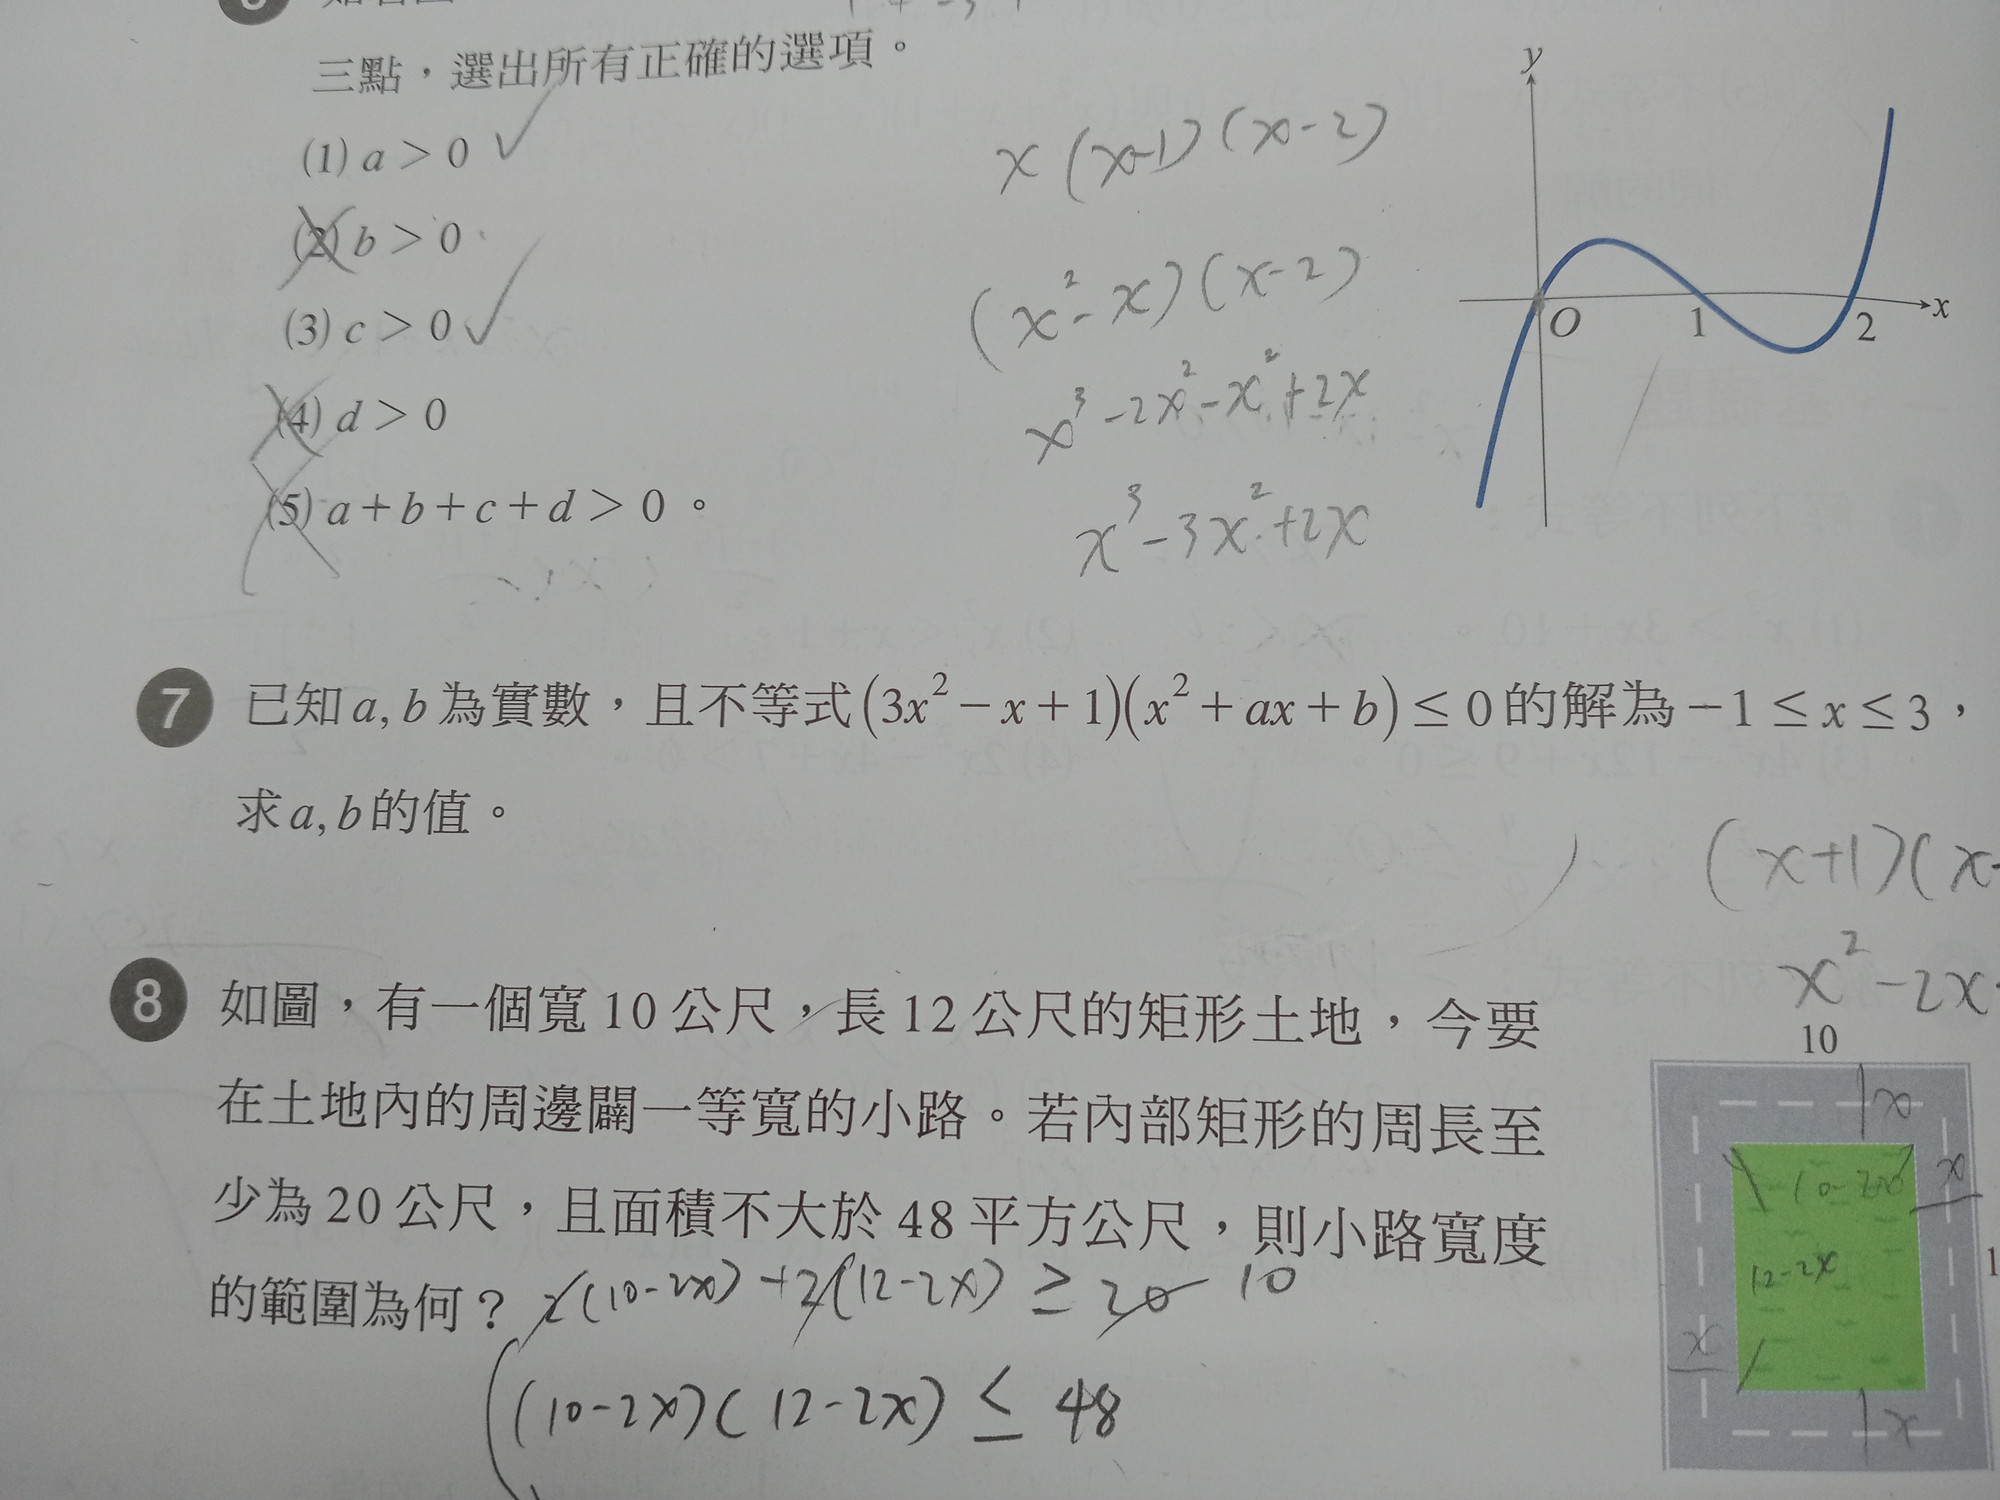 三點，選出所有正確的選項。
(1) a > 0 ✓
(2) b > 0
(3) c > 0 ✓
(4) d > 0
(5) a + b + c + d > 0 。
x (x-1) (x-2)
(x²-x) (x-2)
x³-2x²-x²+2x
x³-3x²+2x
y
O
1
2
x
7 已知 a, b 為實數，且不等式 (3x² − x + 1)(x² + ax + b) ≤ 0 的解為 −1 ≤ x ≤ 3，
求 a, b 的值。
(x+1)(x-
x²-2x-
8 如圖，有一個寬 10 公尺，長 12 公尺的矩形土地，今要
在土地內的周邊闢一等寬的小路。若內部矩形的周長至
少為 20 公尺，且面積不大於 48 平方公尺，則小路寬度
的範圍為何？ 2(10-2x) + 2(12-2x) ≥ 20 10
(10-2x)(12-2x) ≤ 48
10
x
10-2x
x
12-2x
1
x
x